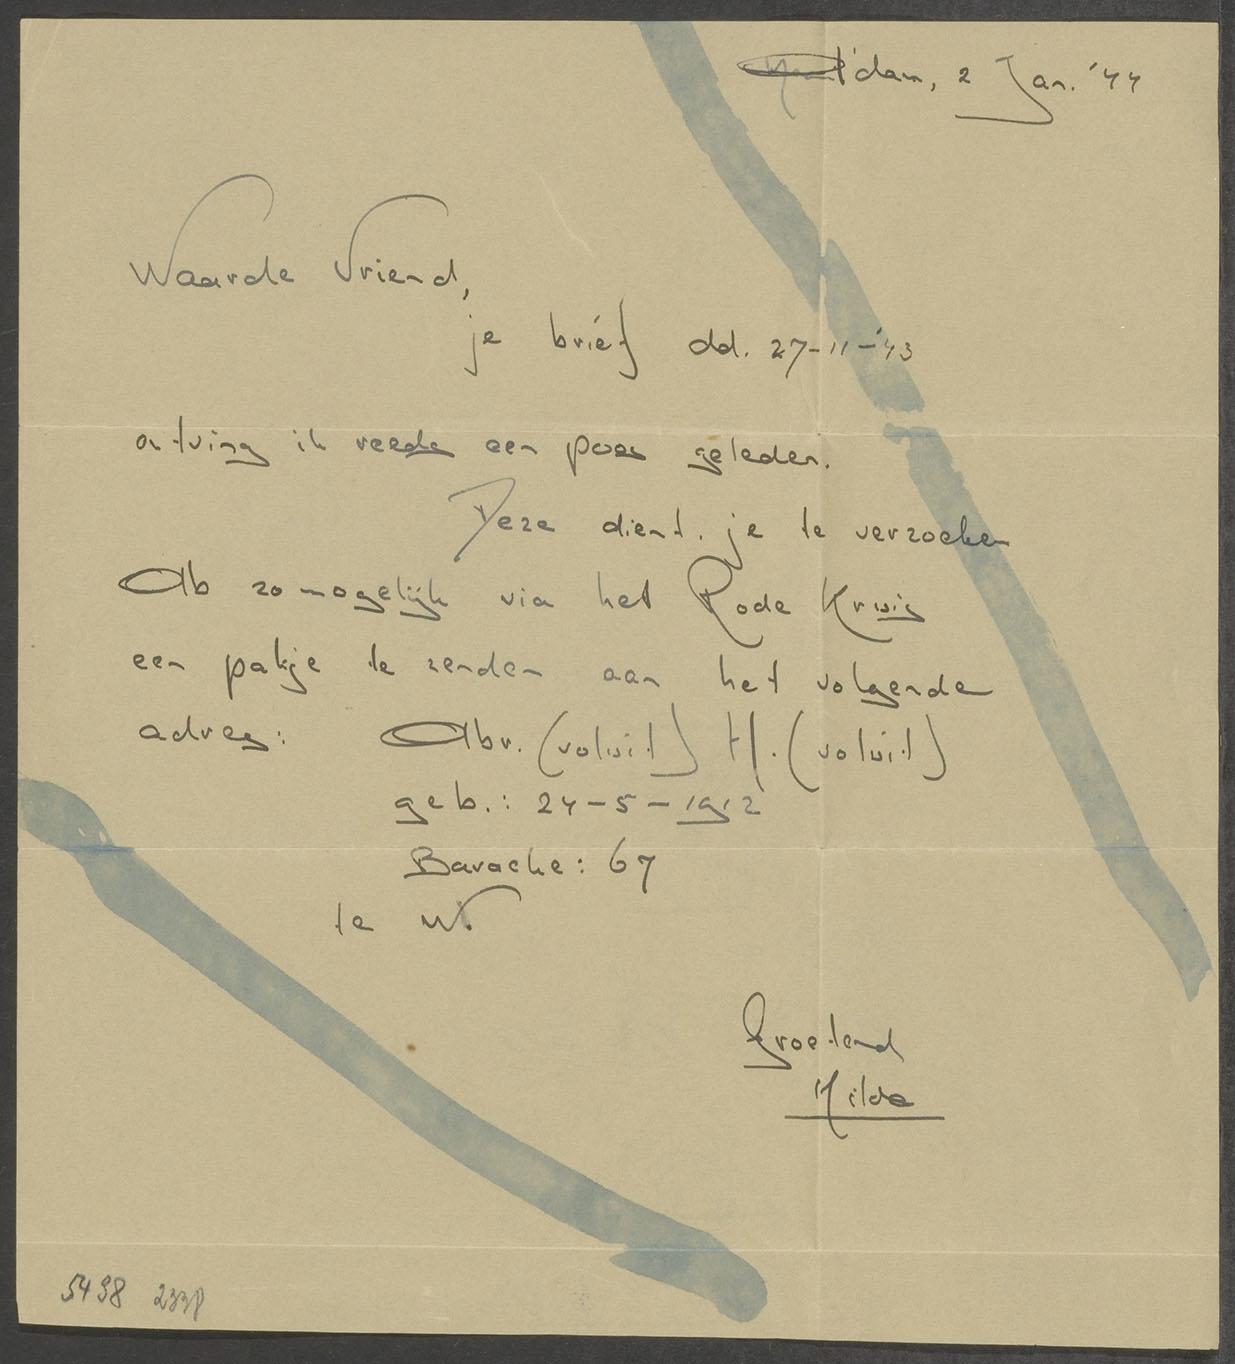 A'dam, 2 Jan. '44
Waarde Vriend,
je brief dd. 27-11-'43
ontving ik reeds een poos geleden.
Deze dient je te verzoeken
Ab zo mogelijk via het Rode Kruis
een pakje te zenden aan het volgende
adres: Abr. (voluit) H. (voluit)
geb.: 24-5-1912
Baracke: 67
te W.
Groetend
Hilda
5498 2338